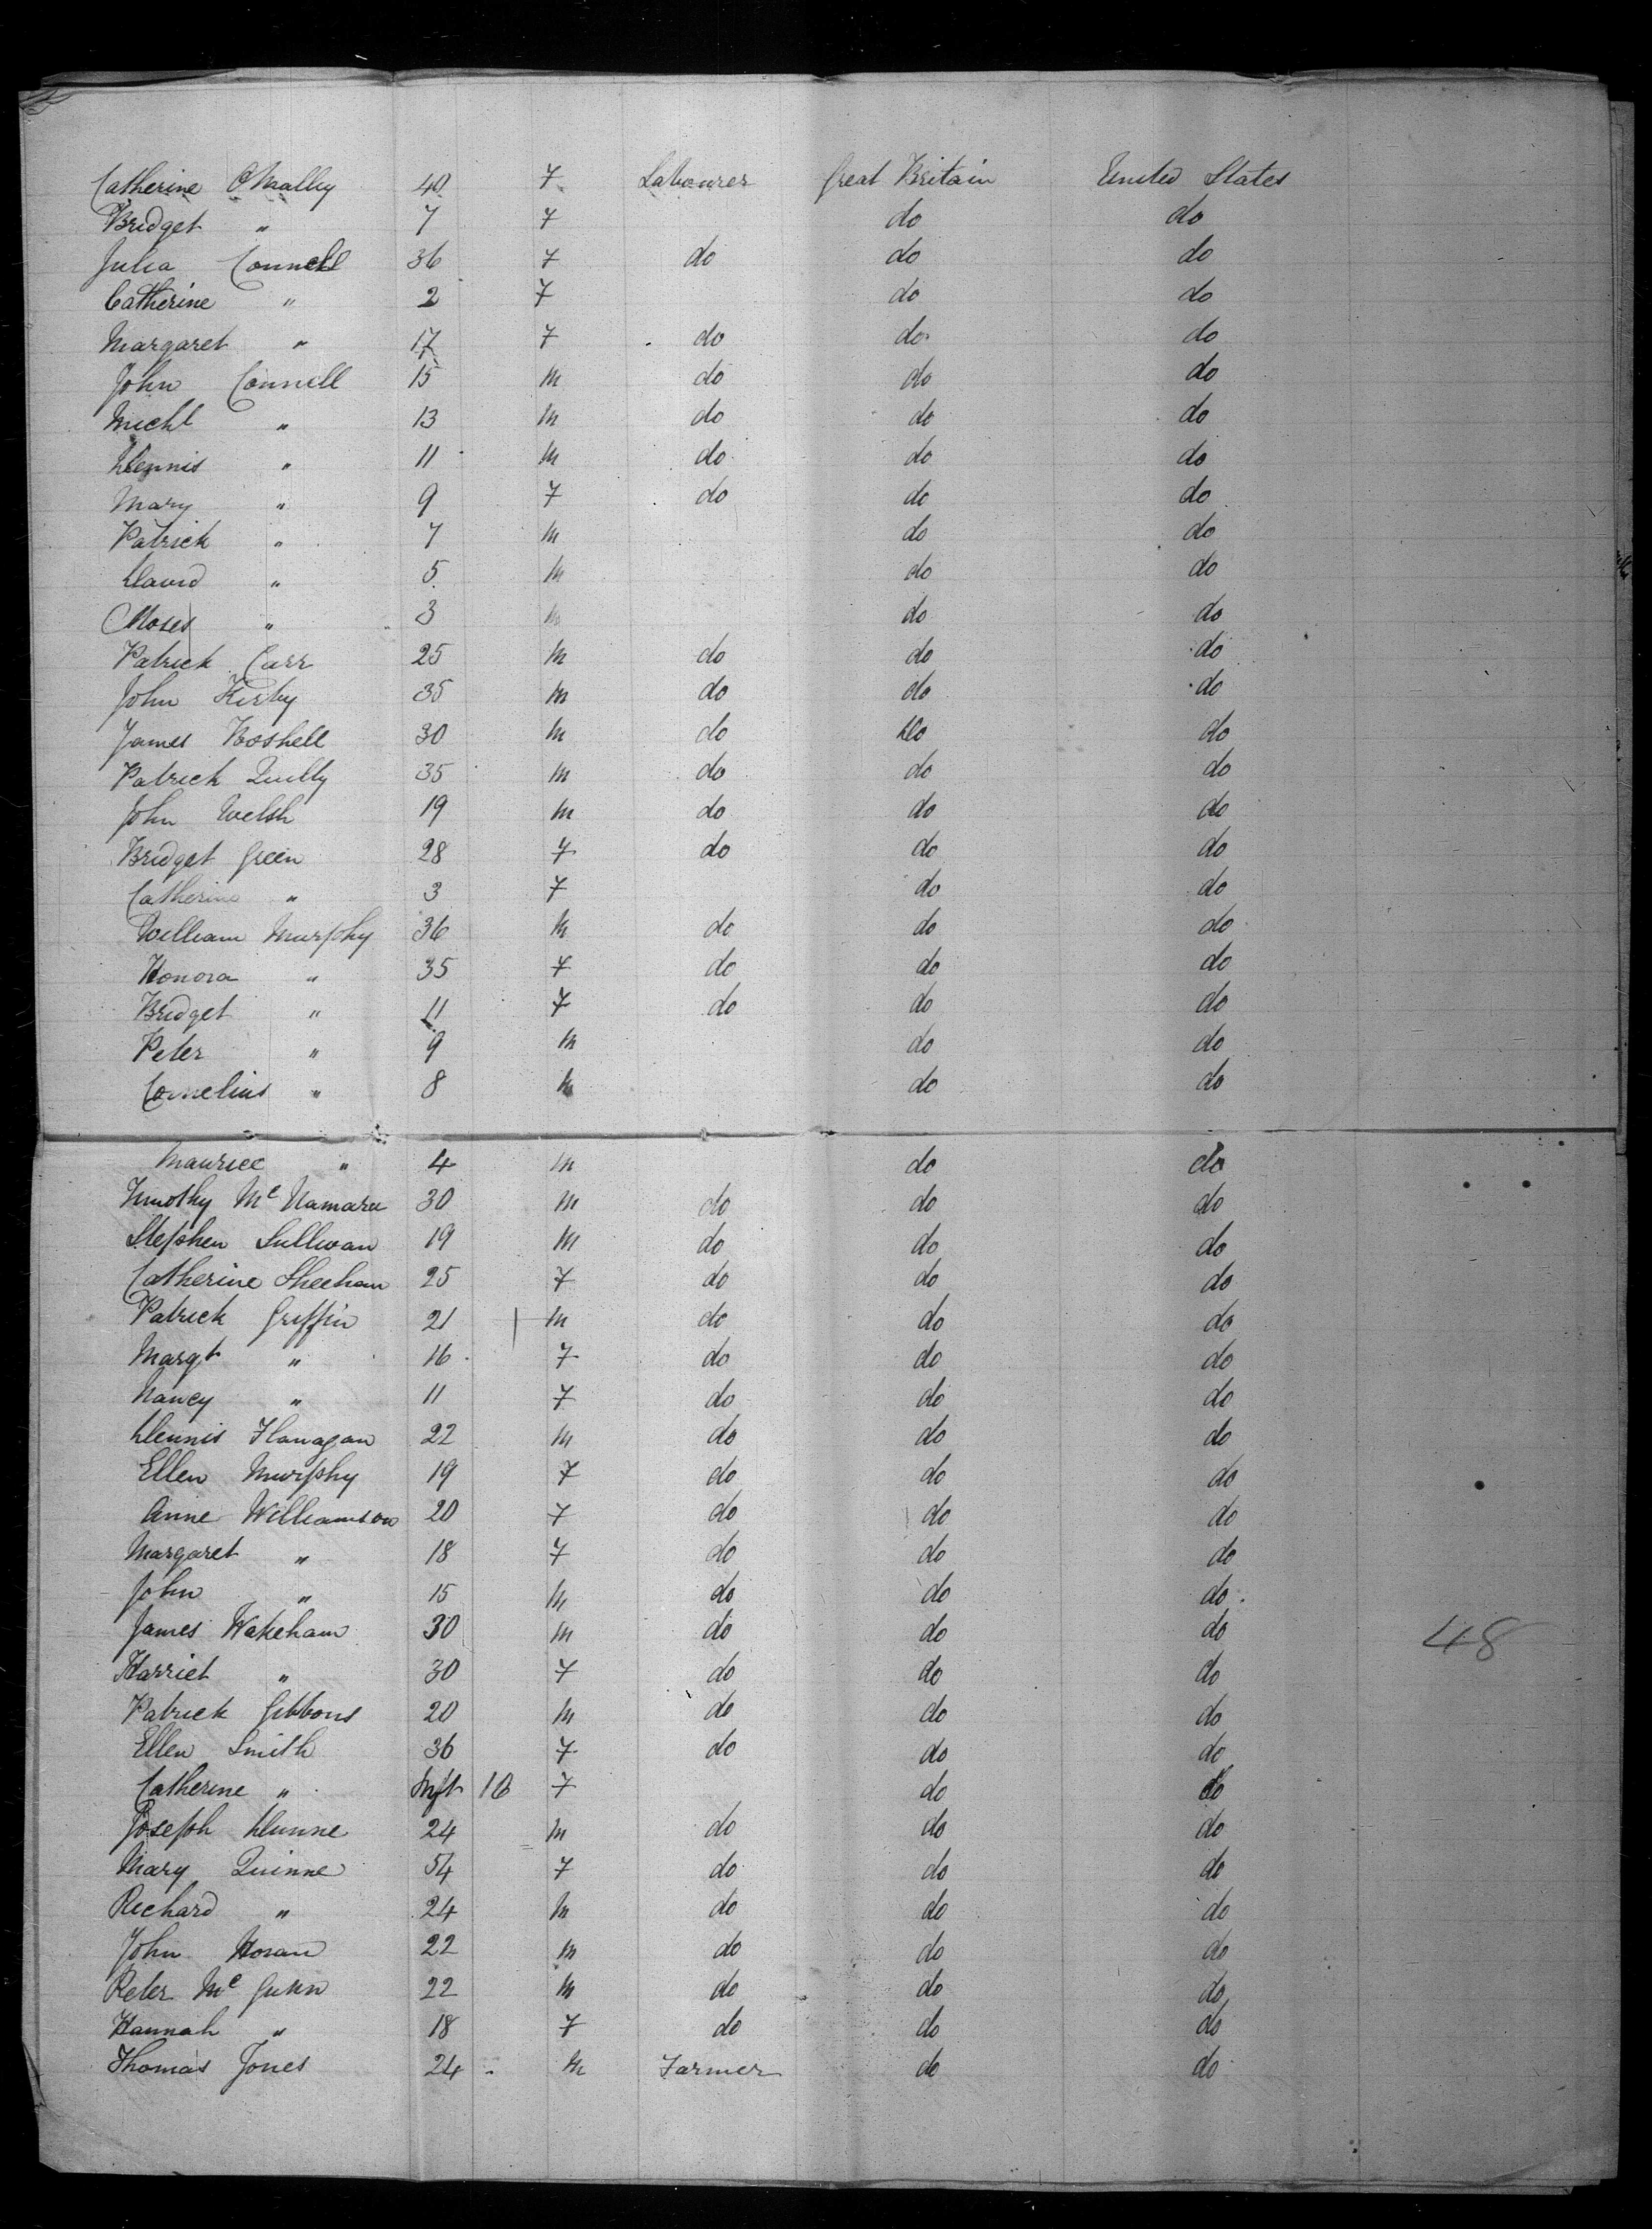 Catherine O'Malley 40 F Labourer Great Britain United States
Bridget " 7 F do do
Julia Connell 36 F do do do
Catherine " 2 F do do
Margaret " 17 F do do do
John Connell 15 M do do do
Michl " 13 M do do do
Dennis " 11 M do do do
Mary " 9 F do do do
Patrick " 7 M do do
David " 5 M do do
Moses " 3 M do do
Patrick Carr 25 M do do do
John Kirby 35 M do do do
James 30 M do Do do
Patrick Quilty 35 M do do do
John Welsh 19 M do do do
Bridget Green 28 F do do do
Catherine " 3 F do do
William Murphy 36 M do do do
Honora " 35 F do do do
Bridget " 11 F do do do
Peter " 9 M do do
Cornelius " 8 M do do
Maurice " 4 M do do
Timothy McNamara 30 M do do do
Stephen Sullivan 19 M do do do
Catherine Sheehan 25 F do do do
Patrick Griffin 21 M do do do
Margt " 16 F do do do
Nancy " 11 F do do do
Dennis Flanagan 22 M do do do
Ellen Murphy 19 F do do do
Anne Williamson 20 F do do do
Margaret " 18 F do do do
John " 15 M do do do
James Wakeham 30 M do do do
48
Harriet " 30 F do do do
Patrick Gibbons 20 M do do do
Ellen Smith 36 F do do do
Catherine " Inft 16 F do do
Joseph Dunne 24 M do do do
Mary Quinne 54 F do do do
Richard " 24 M do do do
John Horan 22 M do do do
Peter McGunn 22 M do do do
Hannah " 18 F do do do
Thomas Jones 24 M Farmer do do